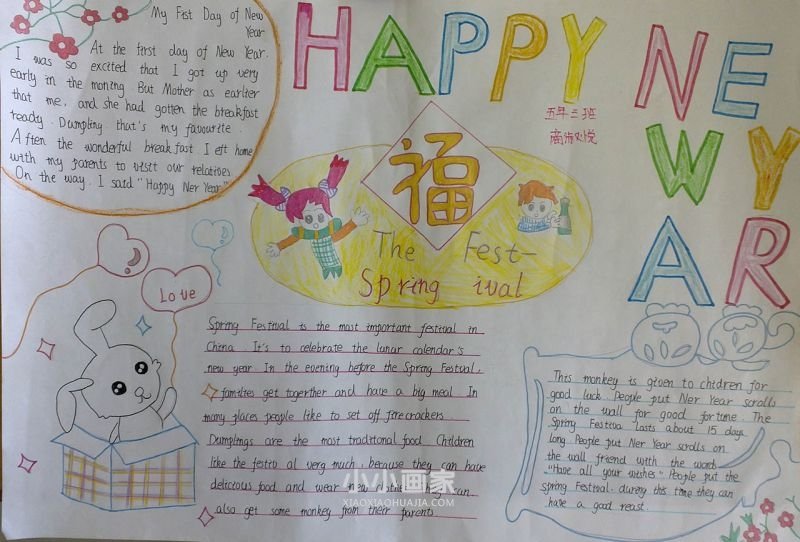 My Fist Day of New
Year
At the first day of New Year.
I was so excited that I got up very
early in the moning. But Mother as earlier
that me, and she had gotten the breakfast
ready. Dumpling. that's my favourite.
After the wonderful breakfast I eft home
with my parents to visit our relatives
On the way. I said "Happy Ner Year"
HAPPY NEW
WY
AR
五年三班
福
The Fest-
Spring ival
Love
Spring Festival is the most important festival in
China It's to celebrate the lunar calendar's
new year In the evening before the Spring Festival,
families get together and have a big meal In
many places people like to set off firecrackers.
Dumplings are the most traditional food Children
like the festiv al very much, because they can have
delicious food and wear new can
also get some monkey from their parents
This monkey is given to children for
good luck People put Ner Year scrolls
on the wall for good fortune The
Spring Festiva lasts about 15 days
long People put Ner Year scrolls on
the wall friend with the words
"Have all your wishes" People put the
spring Festival. during this time they can
have a good reast.
小小画家
XIAOXIAOHUAJIA.COM